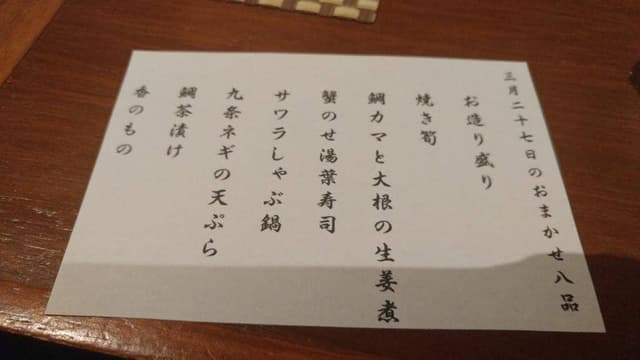 三月二十七日のおまかせ八品
お造り盛り
焼き筍
鯛カマと大根の生姜煮
蟹のせ湯葉寿司
サワラしゃぶ鍋
九条ネギの天ぷら
鯛茶漬け
香のもの